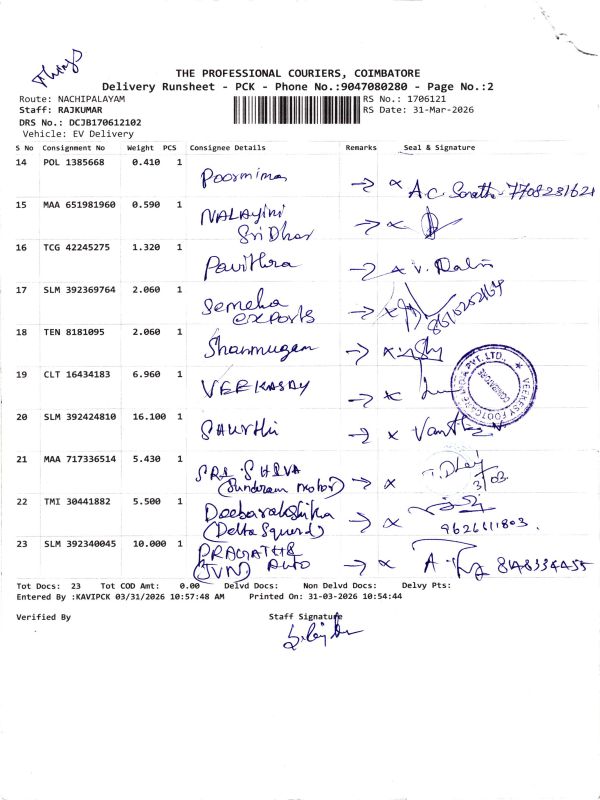 THE PROFESSIONAL COURIERS, COIMBATORE
Delivery Runsheet - PCK - Phone No.:9047080280 - Page No.:2
Route: NACHIPALAYAM
RS No.: 1706121
Staff: RAJKUMAR
RS Date: 31-Mar-2026
DRS No.: DCJB170612102
Vehicle: EV Delivery
S No Consignment No Weight PCS Consignee Details Remarks Seal & Signature
14 POL 1385668 0.410 1
Poornima → A.C.
15 MAA 651981960 0.590 1
NALAyini →
Sri Dhar
16 TCG 42245275 1.320 1
Pavithra → V.
17 SLM 392369764 2.060 1
Semeha →
exports
18 TEN 8181095 2.060 1
Shanmugam →
19 CLT 16434183 6.960 1
VEEKASDY →
20 SLM 392424810 16.100 1
→
21 MAA 717336514 5.430 1
SRI SHIVA →
(Sundaram motor)
22 TMI 30441882 5.500 1
Deebarakshika →
(Delta Squard) 9626111803
23 SLM 392340045 10.000 1
→ A.
(JVN) Auto 8148334455
Tot Docs: 23 Tot COD Amt: 0.00 Delvd Docs: Non Delvd Docs: Delvy Pts:
Entered By :KAVIPCK 03/31/2026 10:57:48 AM Printed On: 31-03-2026 10:54:44
Verified By Staff Signature